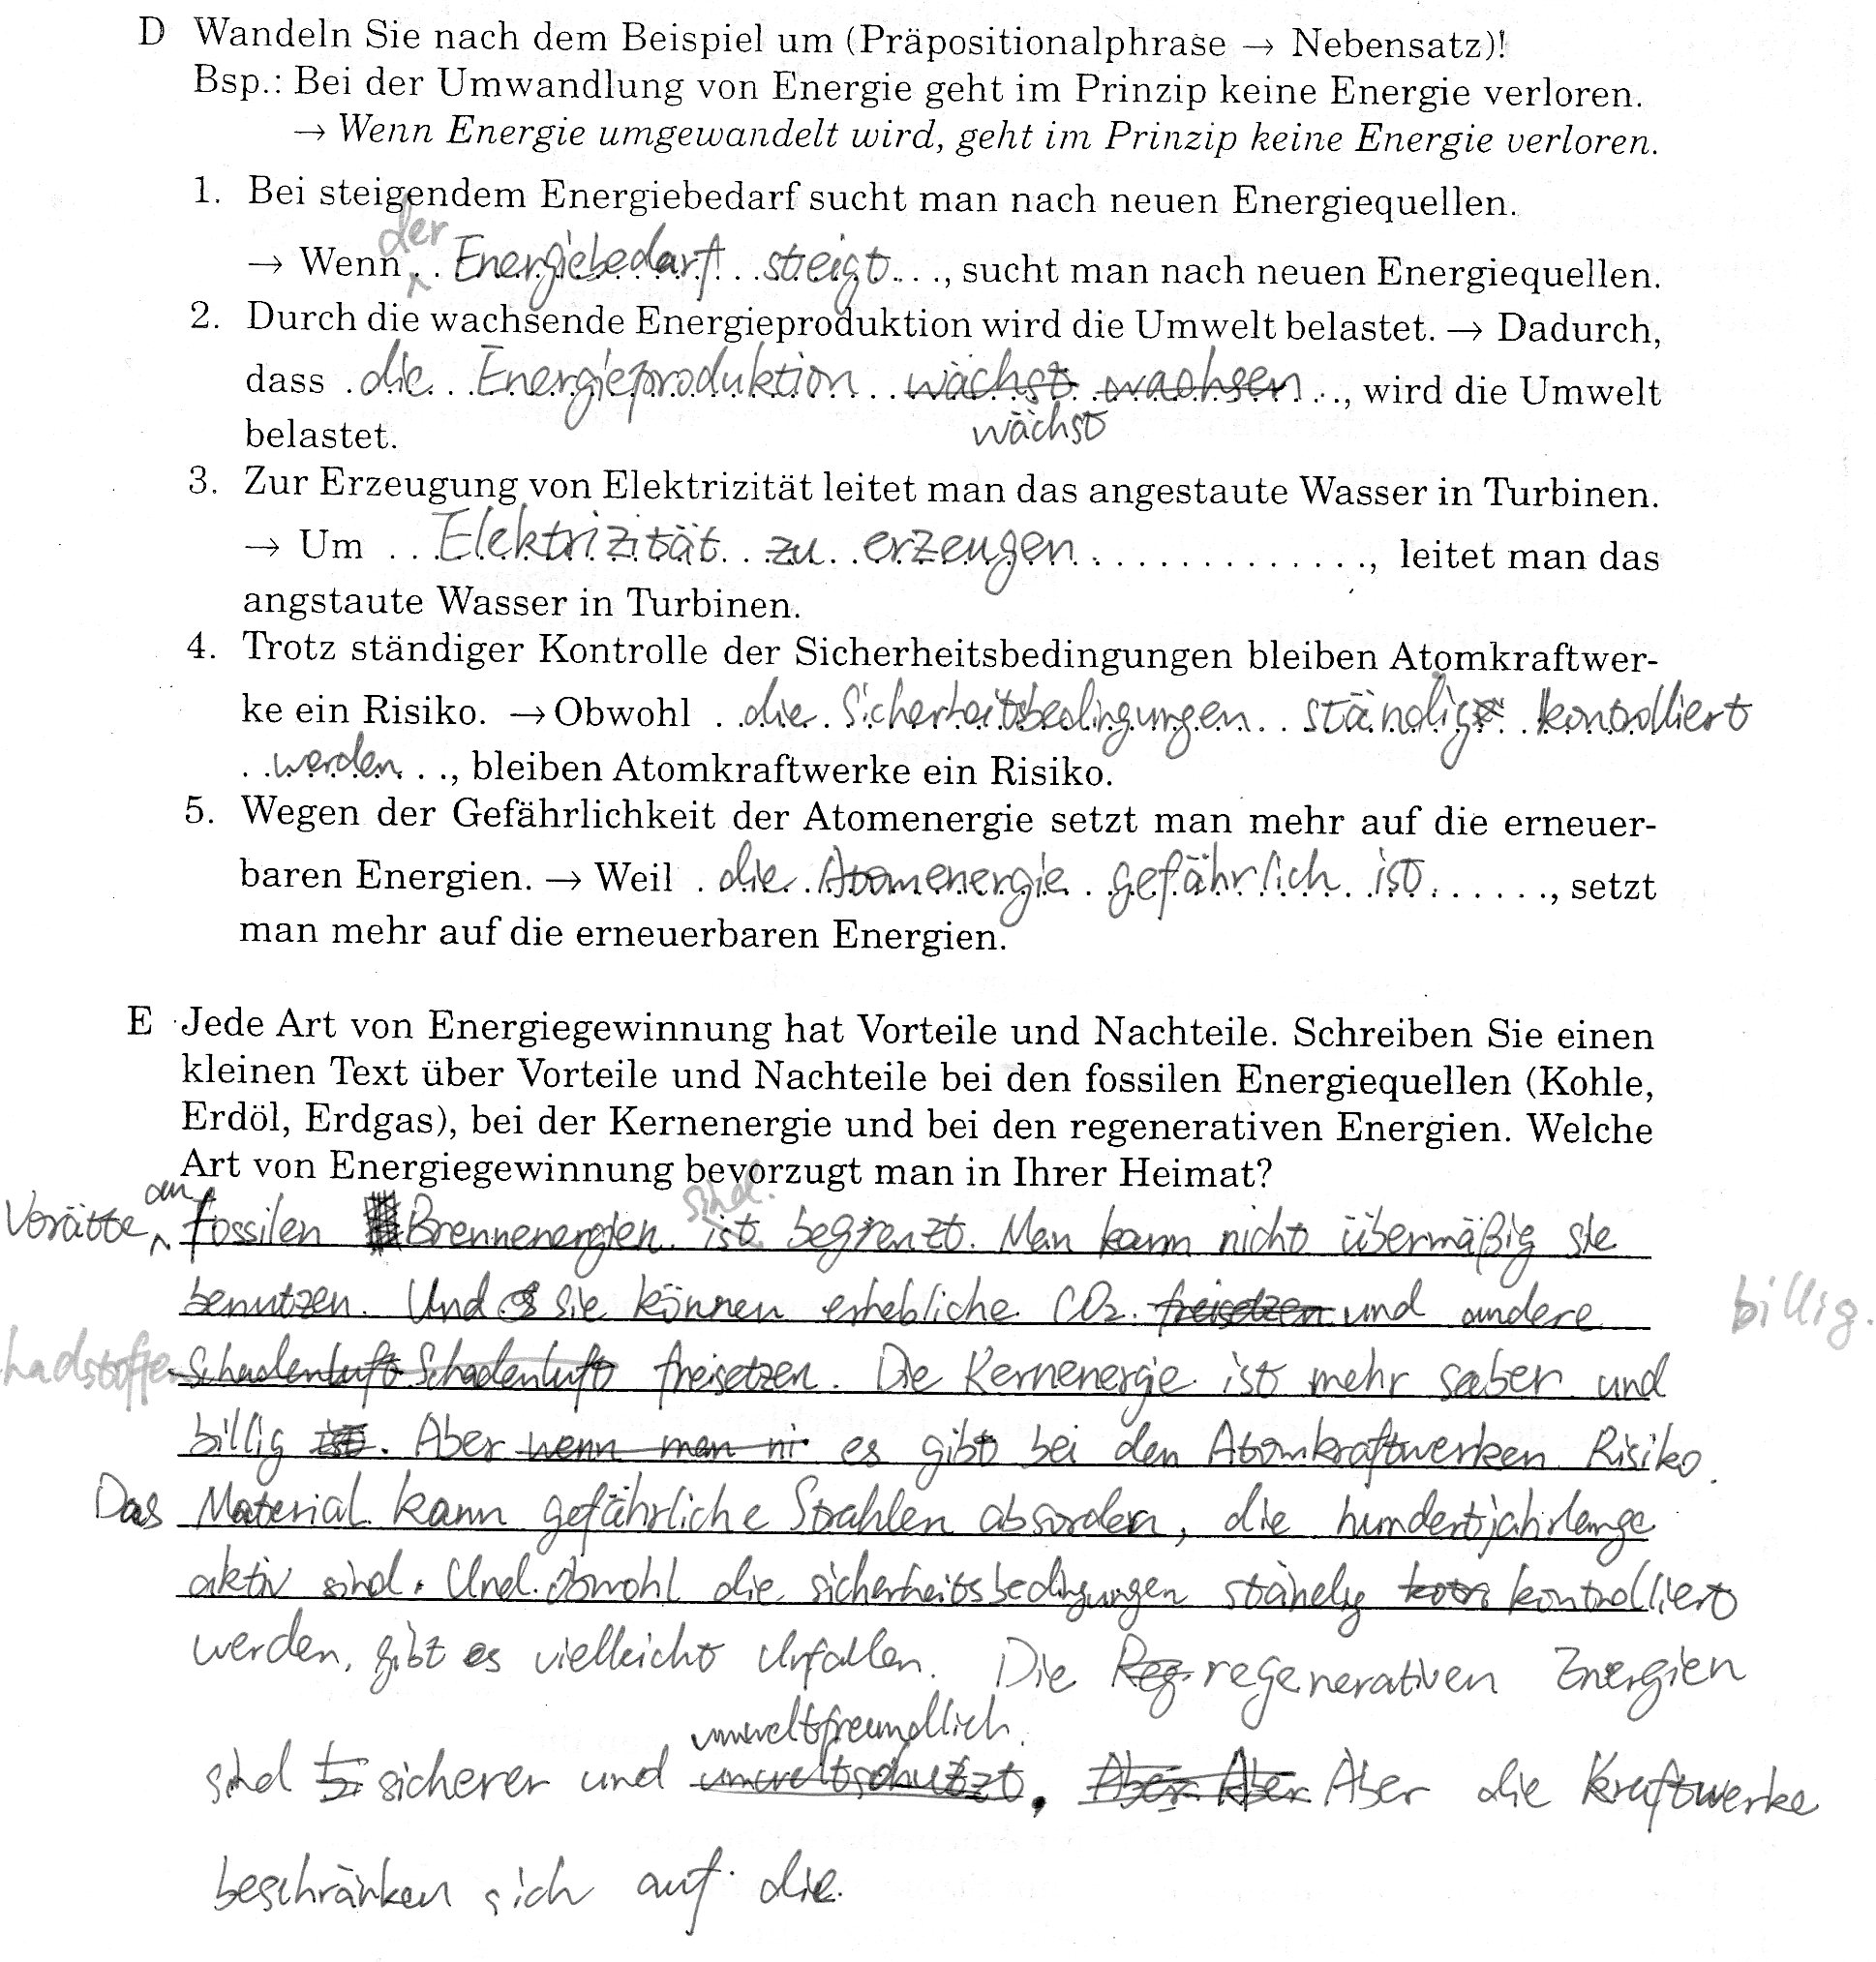 D Wandeln Sie nach dem Beispiel um (Präpositionalphrase → Nebensatz)!
Bsp.: Bei der Umwandlung von Energie geht im Prinzip keine Energie verloren.
→ Wenn Energie umgewandelt wird, geht im Prinzip keine Energie verloren.
1. Bei steigendem Energiebedarf sucht man nach neuen Energiequellen.
→ Wenn der Energiebedarf steigt, sucht man nach neuen Energiequellen.
2. Durch die wachsende Energieproduktion wird die Umwelt belastet. → Dadurch,
dass die Energieproduktion wächst wachsen, wird die Umwelt
wächst
belastet.
3. Zur Erzeugung von Elektrizität leitet man das angestaute Wasser in Turbinen.
→ Um Elektrizität zu erzeugen, leitet man das
angstaute Wasser in Turbinen.
4. Trotz ständiger Kontrolle der Sicherheitsbedingungen bleiben Atomkraftwer-
ke ein Risiko. → Obwohl die Sicherheitsbedingungen ständig kontrolliert
werden, bleiben Atomkraftwerke ein Risiko.
5. Wegen der Gefährlichkeit der Atomenergie setzt man mehr auf die erneuer-
baren Energien. → Weil die Atomenergie gefährlich ist, setzt
man mehr auf die erneuerbaren Energien.
E Jede Art von Energiegewinnung hat Vorteile und Nachteile. Schreiben Sie einen
kleinen Text über Vorteile und Nachteile bei den fossilen Energiequellen (Kohle,
Erdöl, Erdgas), bei der Kernenergie und bei den regenerativen Energien. Welche
Art von Energiegewinnung bevorzugt man in Ihrer Heimat?
Vorätte an fossilen Brennenergien ist sind begrenzt. Man kann nicht übermäßig sie
benutzen. Und sie können erhebliche CO2 freisetzen und andere
billig.
hadstoffe Schadenluft Schadenluft freisetzen. Die Kernenergie ist mehr saber und
billig ist. Aber wenn man es gibt bei den Atomkraftwerken Risiko.
Das Material kann gefährliche Strahlen absorden, die hundertjahrlange
aktiv sind. Und obwohl die sicherheitsbedingungen ständig kontrolliert
werden, gibt es vielleicht Unfallen. Die Reg regenerativen Energien
umweltfreundlich
sind sicherer und umweltschutzt. Aber Aber Aber die Kraftwerke
beschränken sich auf die